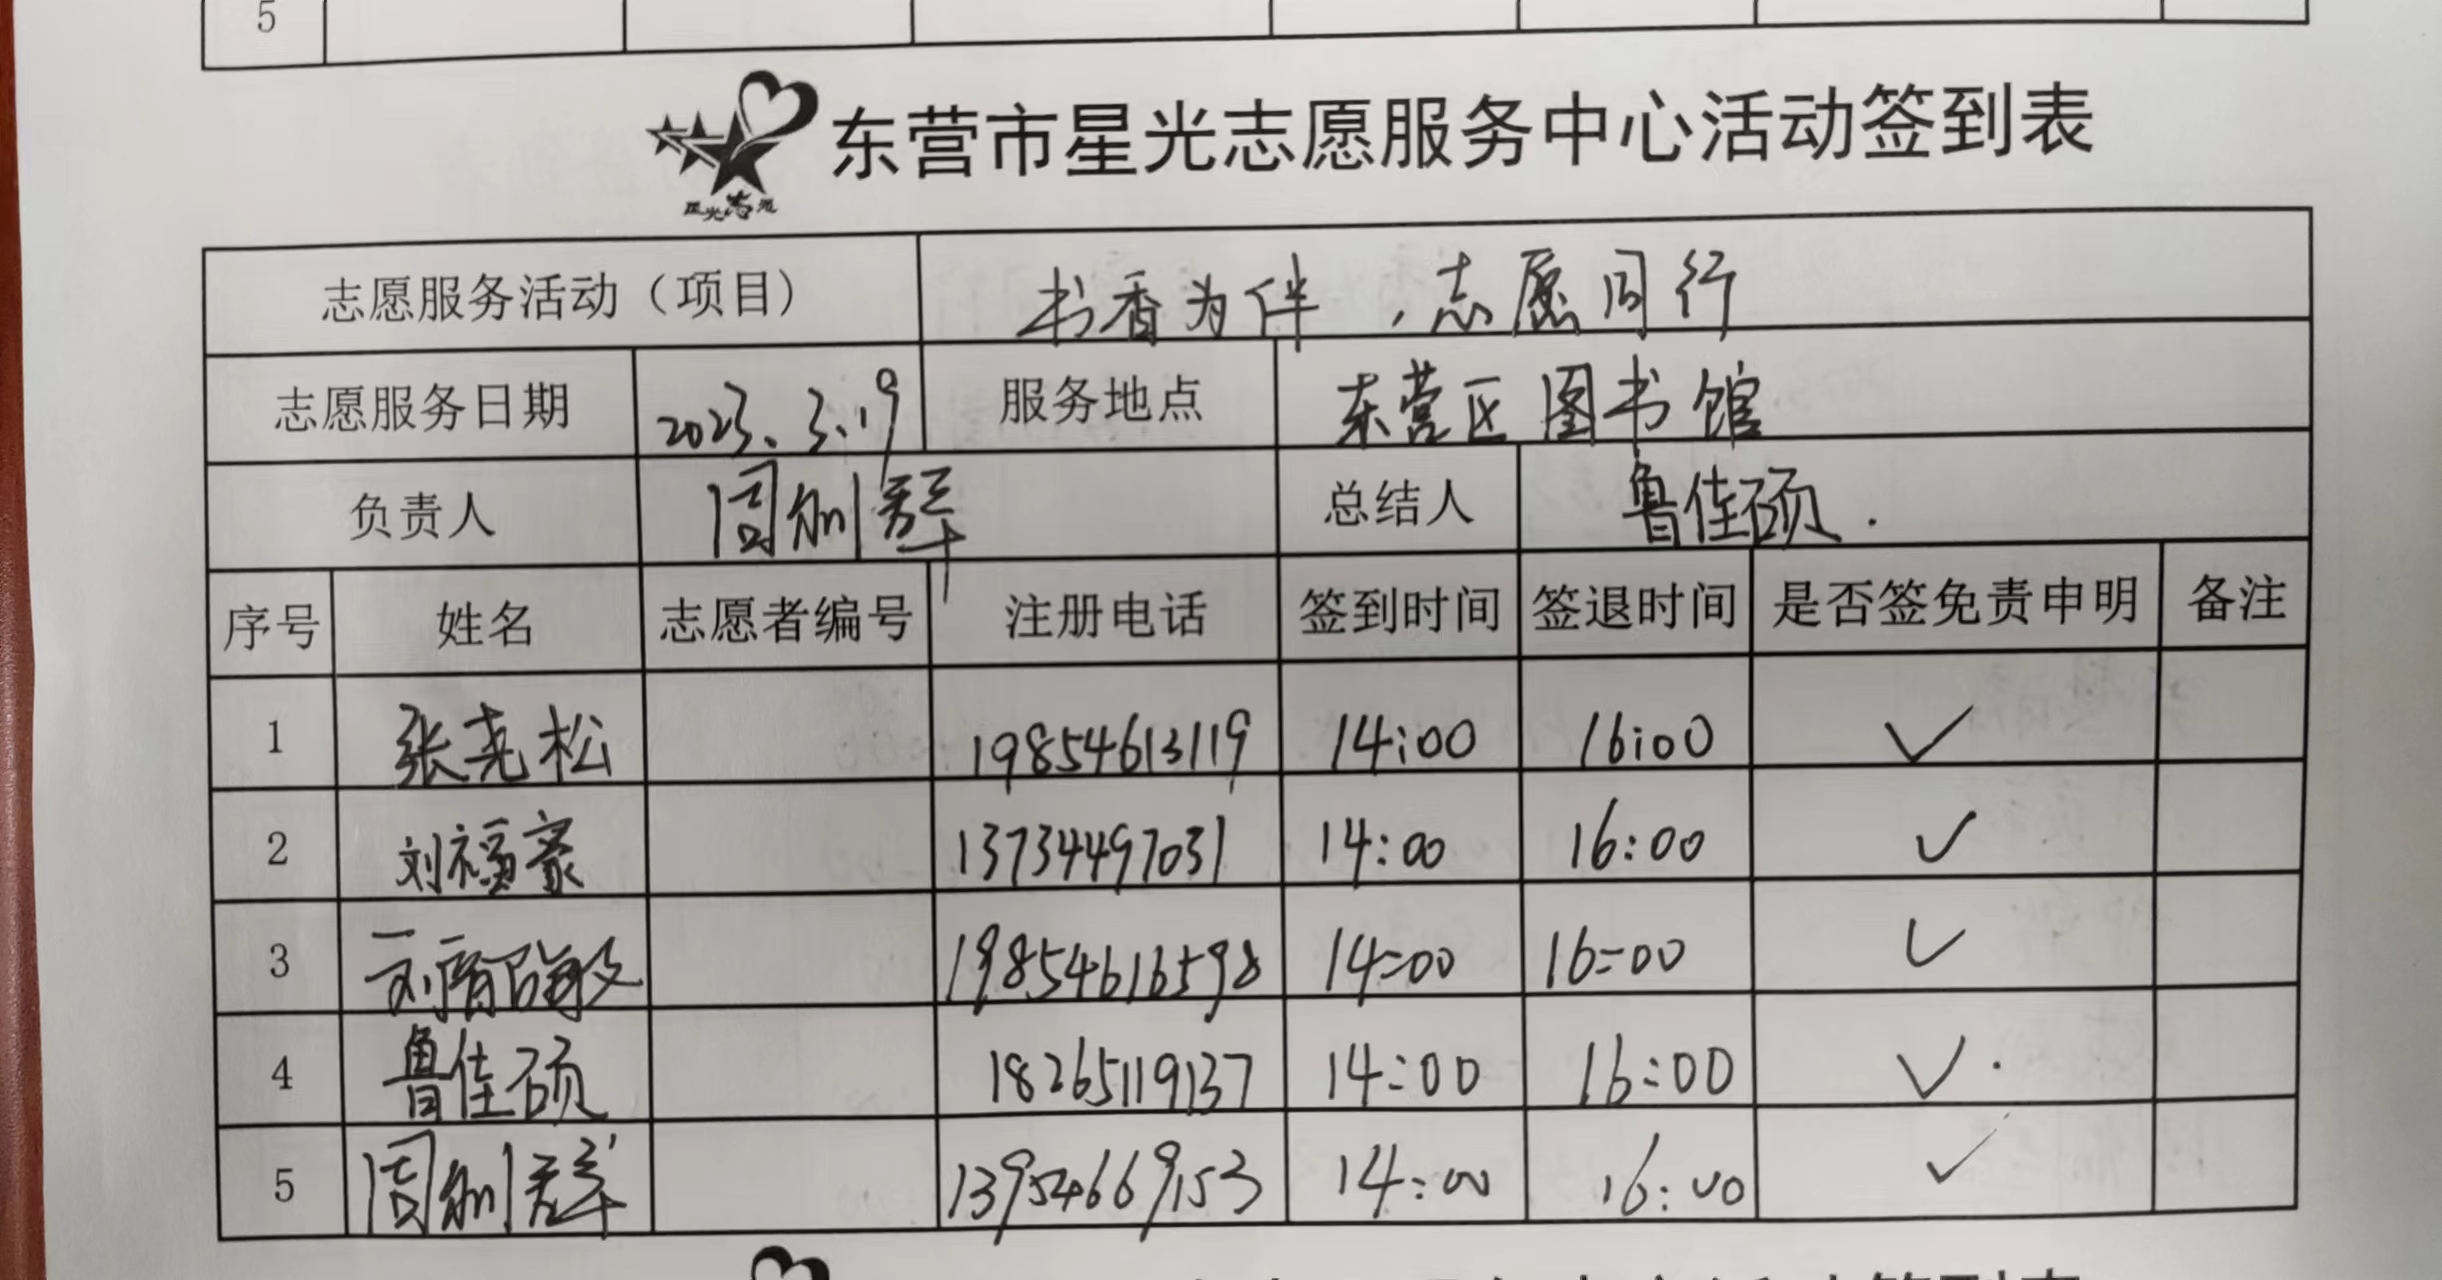 5
星光志愿
东营市星光志愿服务中心活动签到表
志愿服务活动（项目） 书香为伴，志愿同行
志愿服务日期 2023.3.19 服务地点 东营区图书馆
负责人 周 总结人 鲁佳硕.
序号 姓名 志愿者编号 注册电话 签到时间 签退时间 是否签免责申明 备注
1 张尧松 19854613119 14:00 16:00 ✓
2 刘福豪 13734497031 14:00 16:00 ✓
3 刘 19854616598 14:00 16:00 ✓
4 鲁佳硕 18265119137 14:00 16:00 ✓.
5 周 13954669153 14:00 16:00 ✓